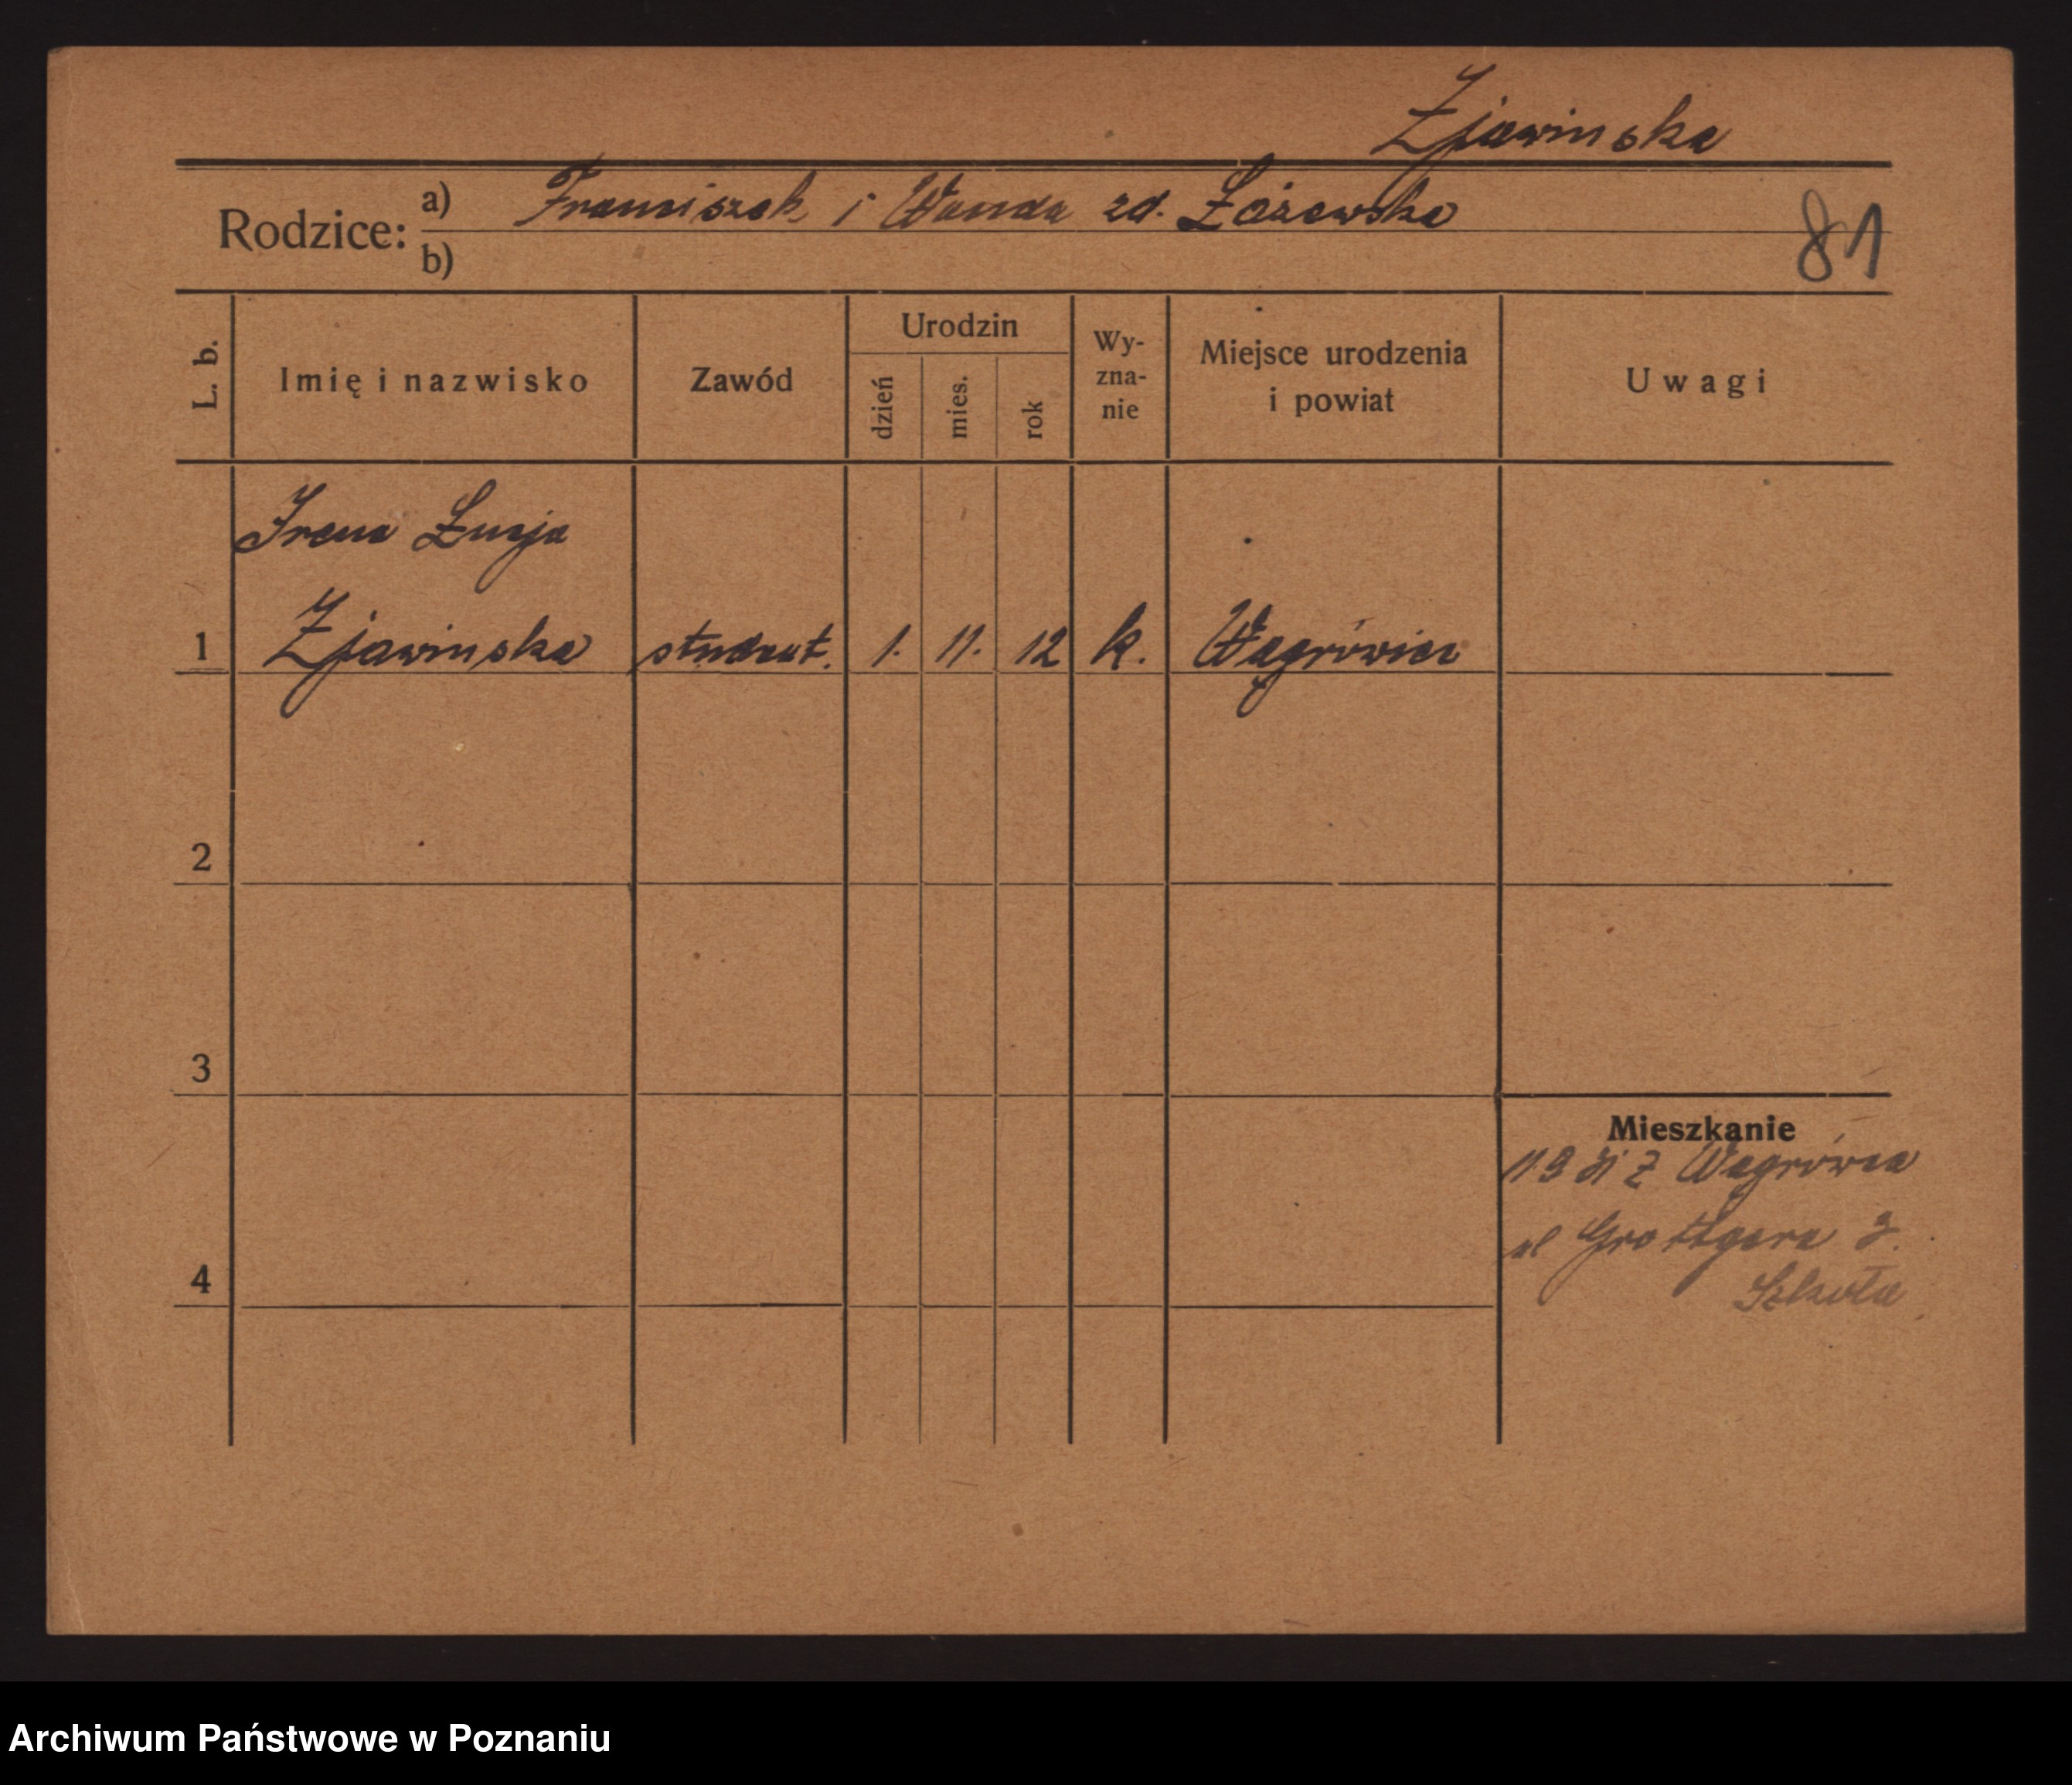 Zjawinska
Rodzice: a) Franciszek i Wanda zd. Łożewska
b)
81
L. b. Imię i nazwisko Zawód Urodzin dzień mies. rok Wy-zna-nie Miejsce urodzenia i powiat Uwagi
Irena Łucja
1 Zjawinska student. 1. 11. 12 k. Wągrówiec
2
3
Mieszkanie
z Wągrówca
ul Grottgera 3.
Szkoła
4
Archiwum Państwowe w Poznaniu